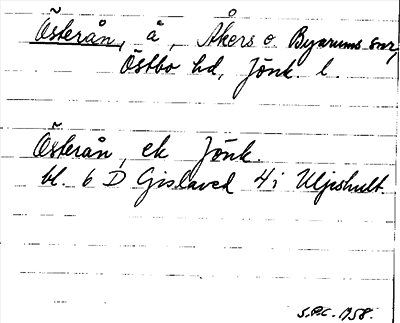 Österån, å, Åkers o Byarums snr,
Östbo hd, Jönk. l.
Österån, ek Jönk.
bl. 6 D Gislaved 4 i Uljeshult.
S.P.C. 1958.